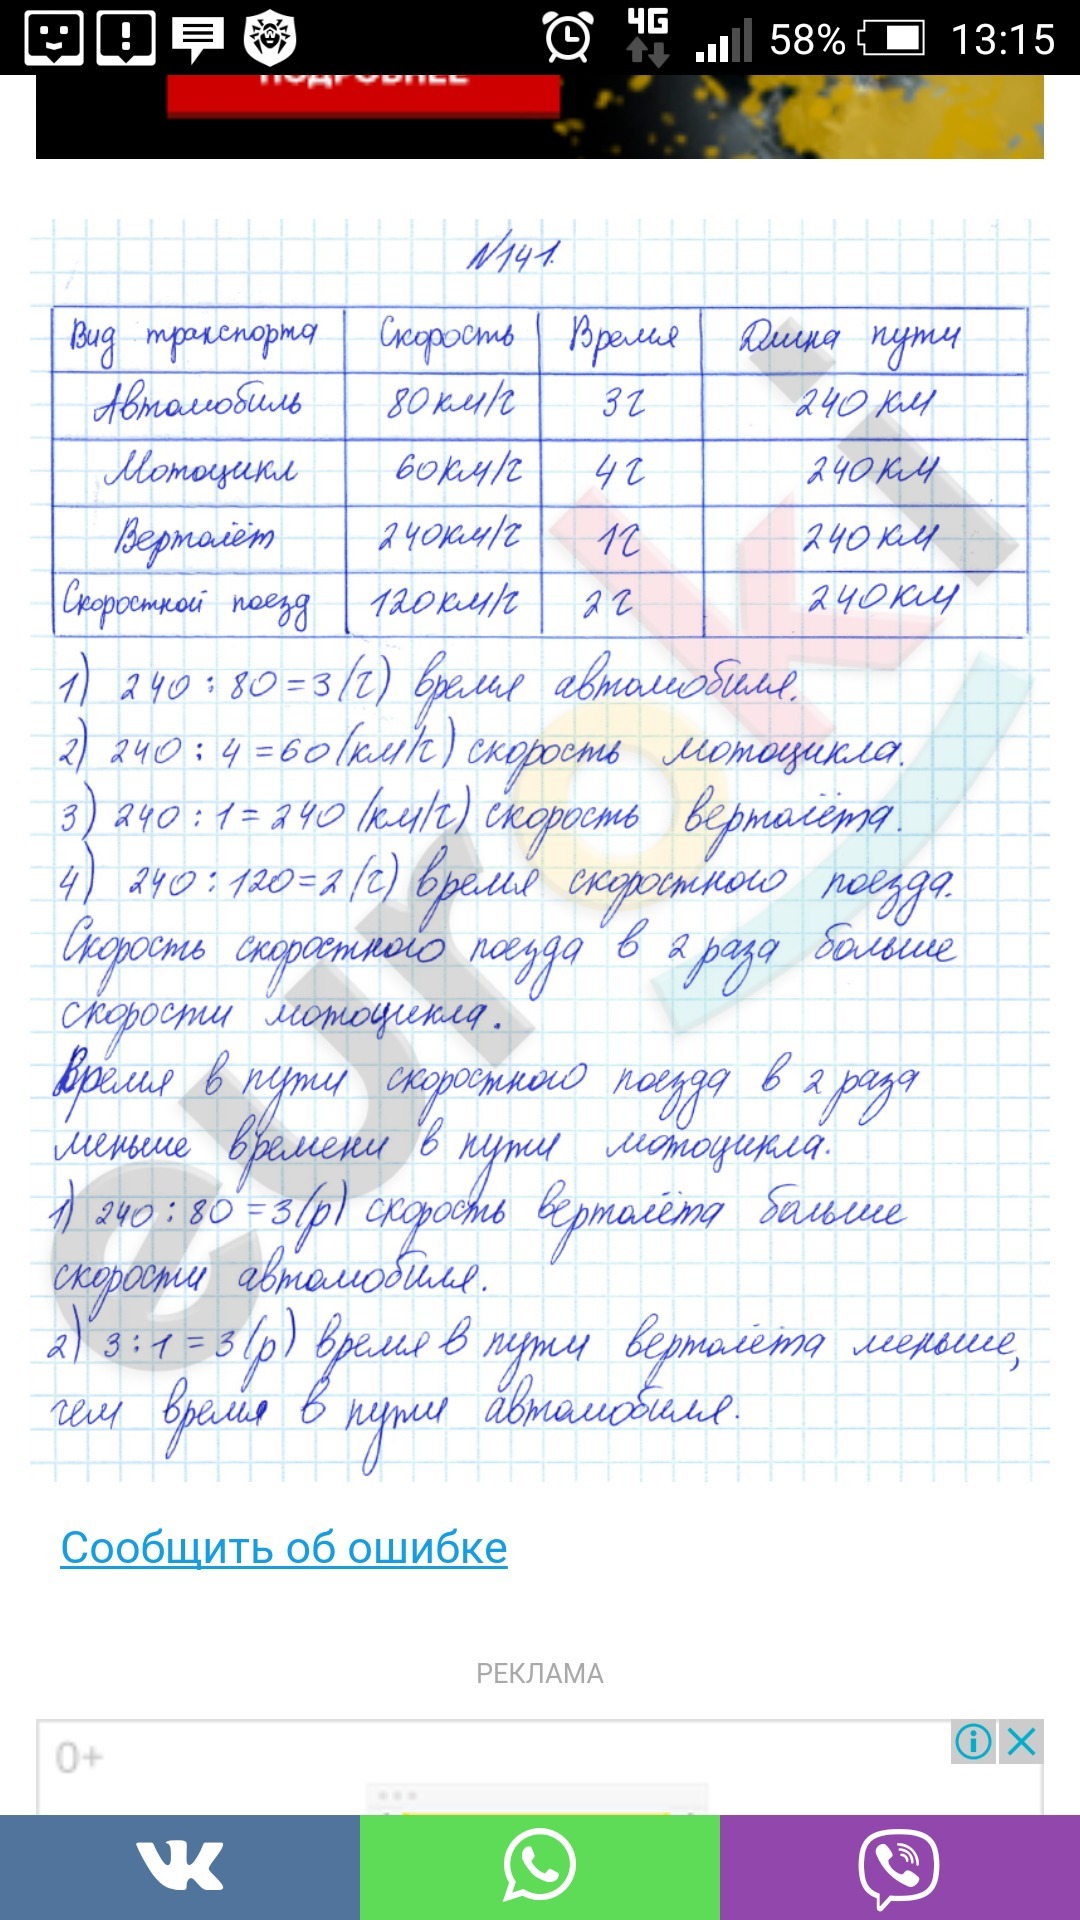 4G 58% 13:15
ПОДРОБНЕЕ
№141.
Вид транспорта Скорость Время Длина пути
Автомобиль 80 км/ч 3 ч 240 км
Мотоцикл 60 км/ч 4 ч 240 км
Вертолёт 240 км/ч 1 ч 240 км
Скоростной поезд 120 км/ч 2 ч 240 км
1) 240 : 80 = 3 (ч) время автомобиля.
2) 240 : 4 = 60 (км/ч) скорость мотоцикла.
3) 240 : 1 = 240 (км/ч) скорость вертолёта.
4) 240 : 120 = 2 (ч) время скоростного поезда.
Скорость скоростного поезда в 2 раза больше
скорости мотоцикла.
Время в пути скоростного поезда в 2 раза
меньше времени в пути мотоцикла.
1) 240 : 80 = 3 (р) скорость вертолёта больше
скорости автомобиля.
2) 3 : 1 = 3 (р) время в пути вертолёта меньше,
чем время в пути автомобиля.
euroki
Сообщить об ошибке
РЕКЛАМА
0+